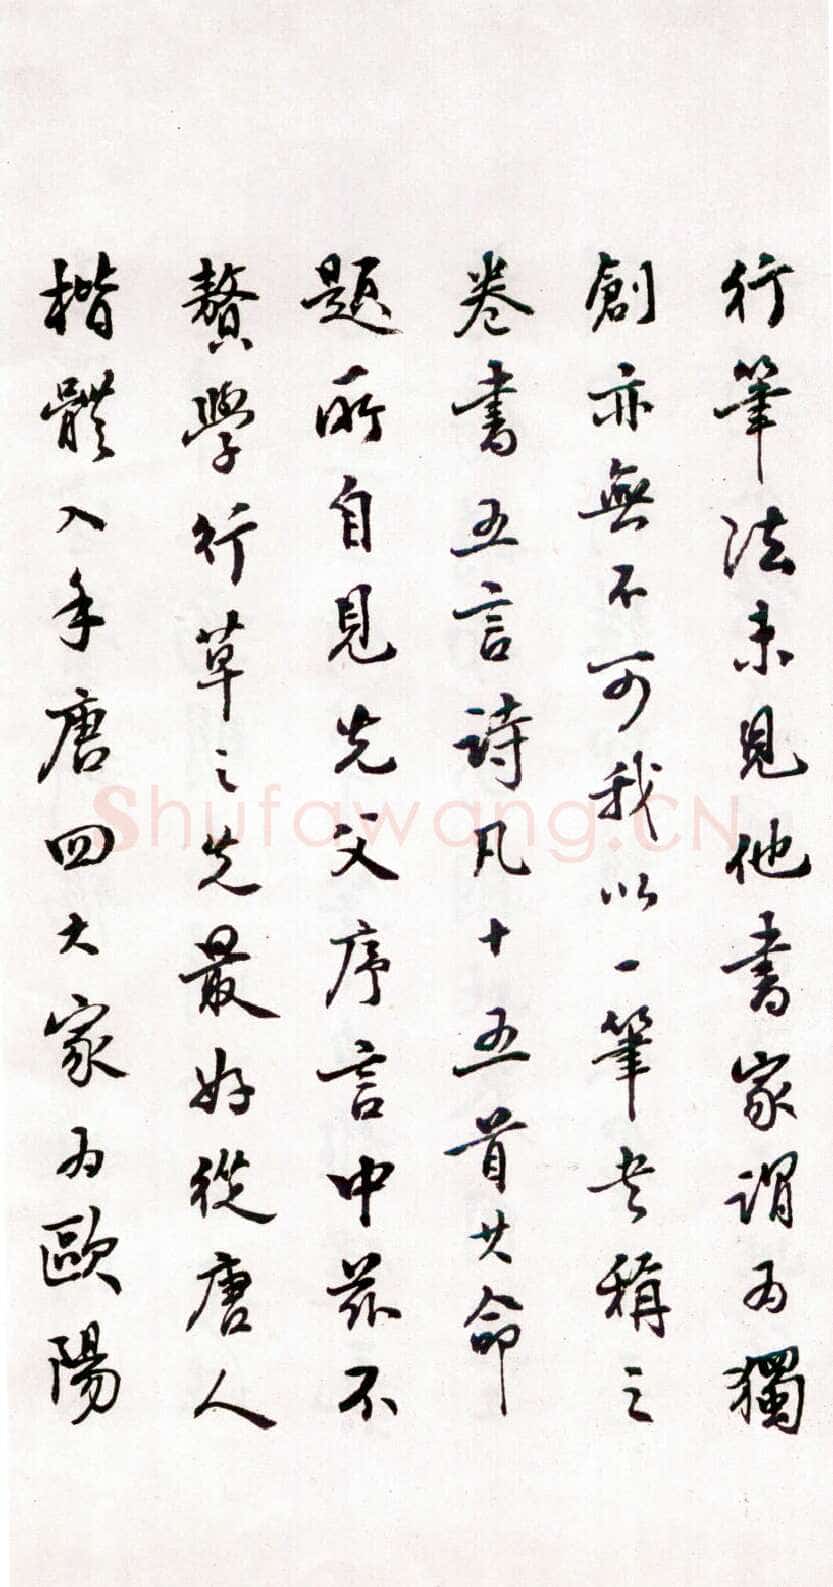 行筆法未見他書家謂为獨
創亦無不可我以一筆書稱之
卷書五言詩凡十五首其命
題所自見先父序言中茲不
贅學行草之先最好從唐人
楷體入手唐四大家为歐陽
Shufawang.CN